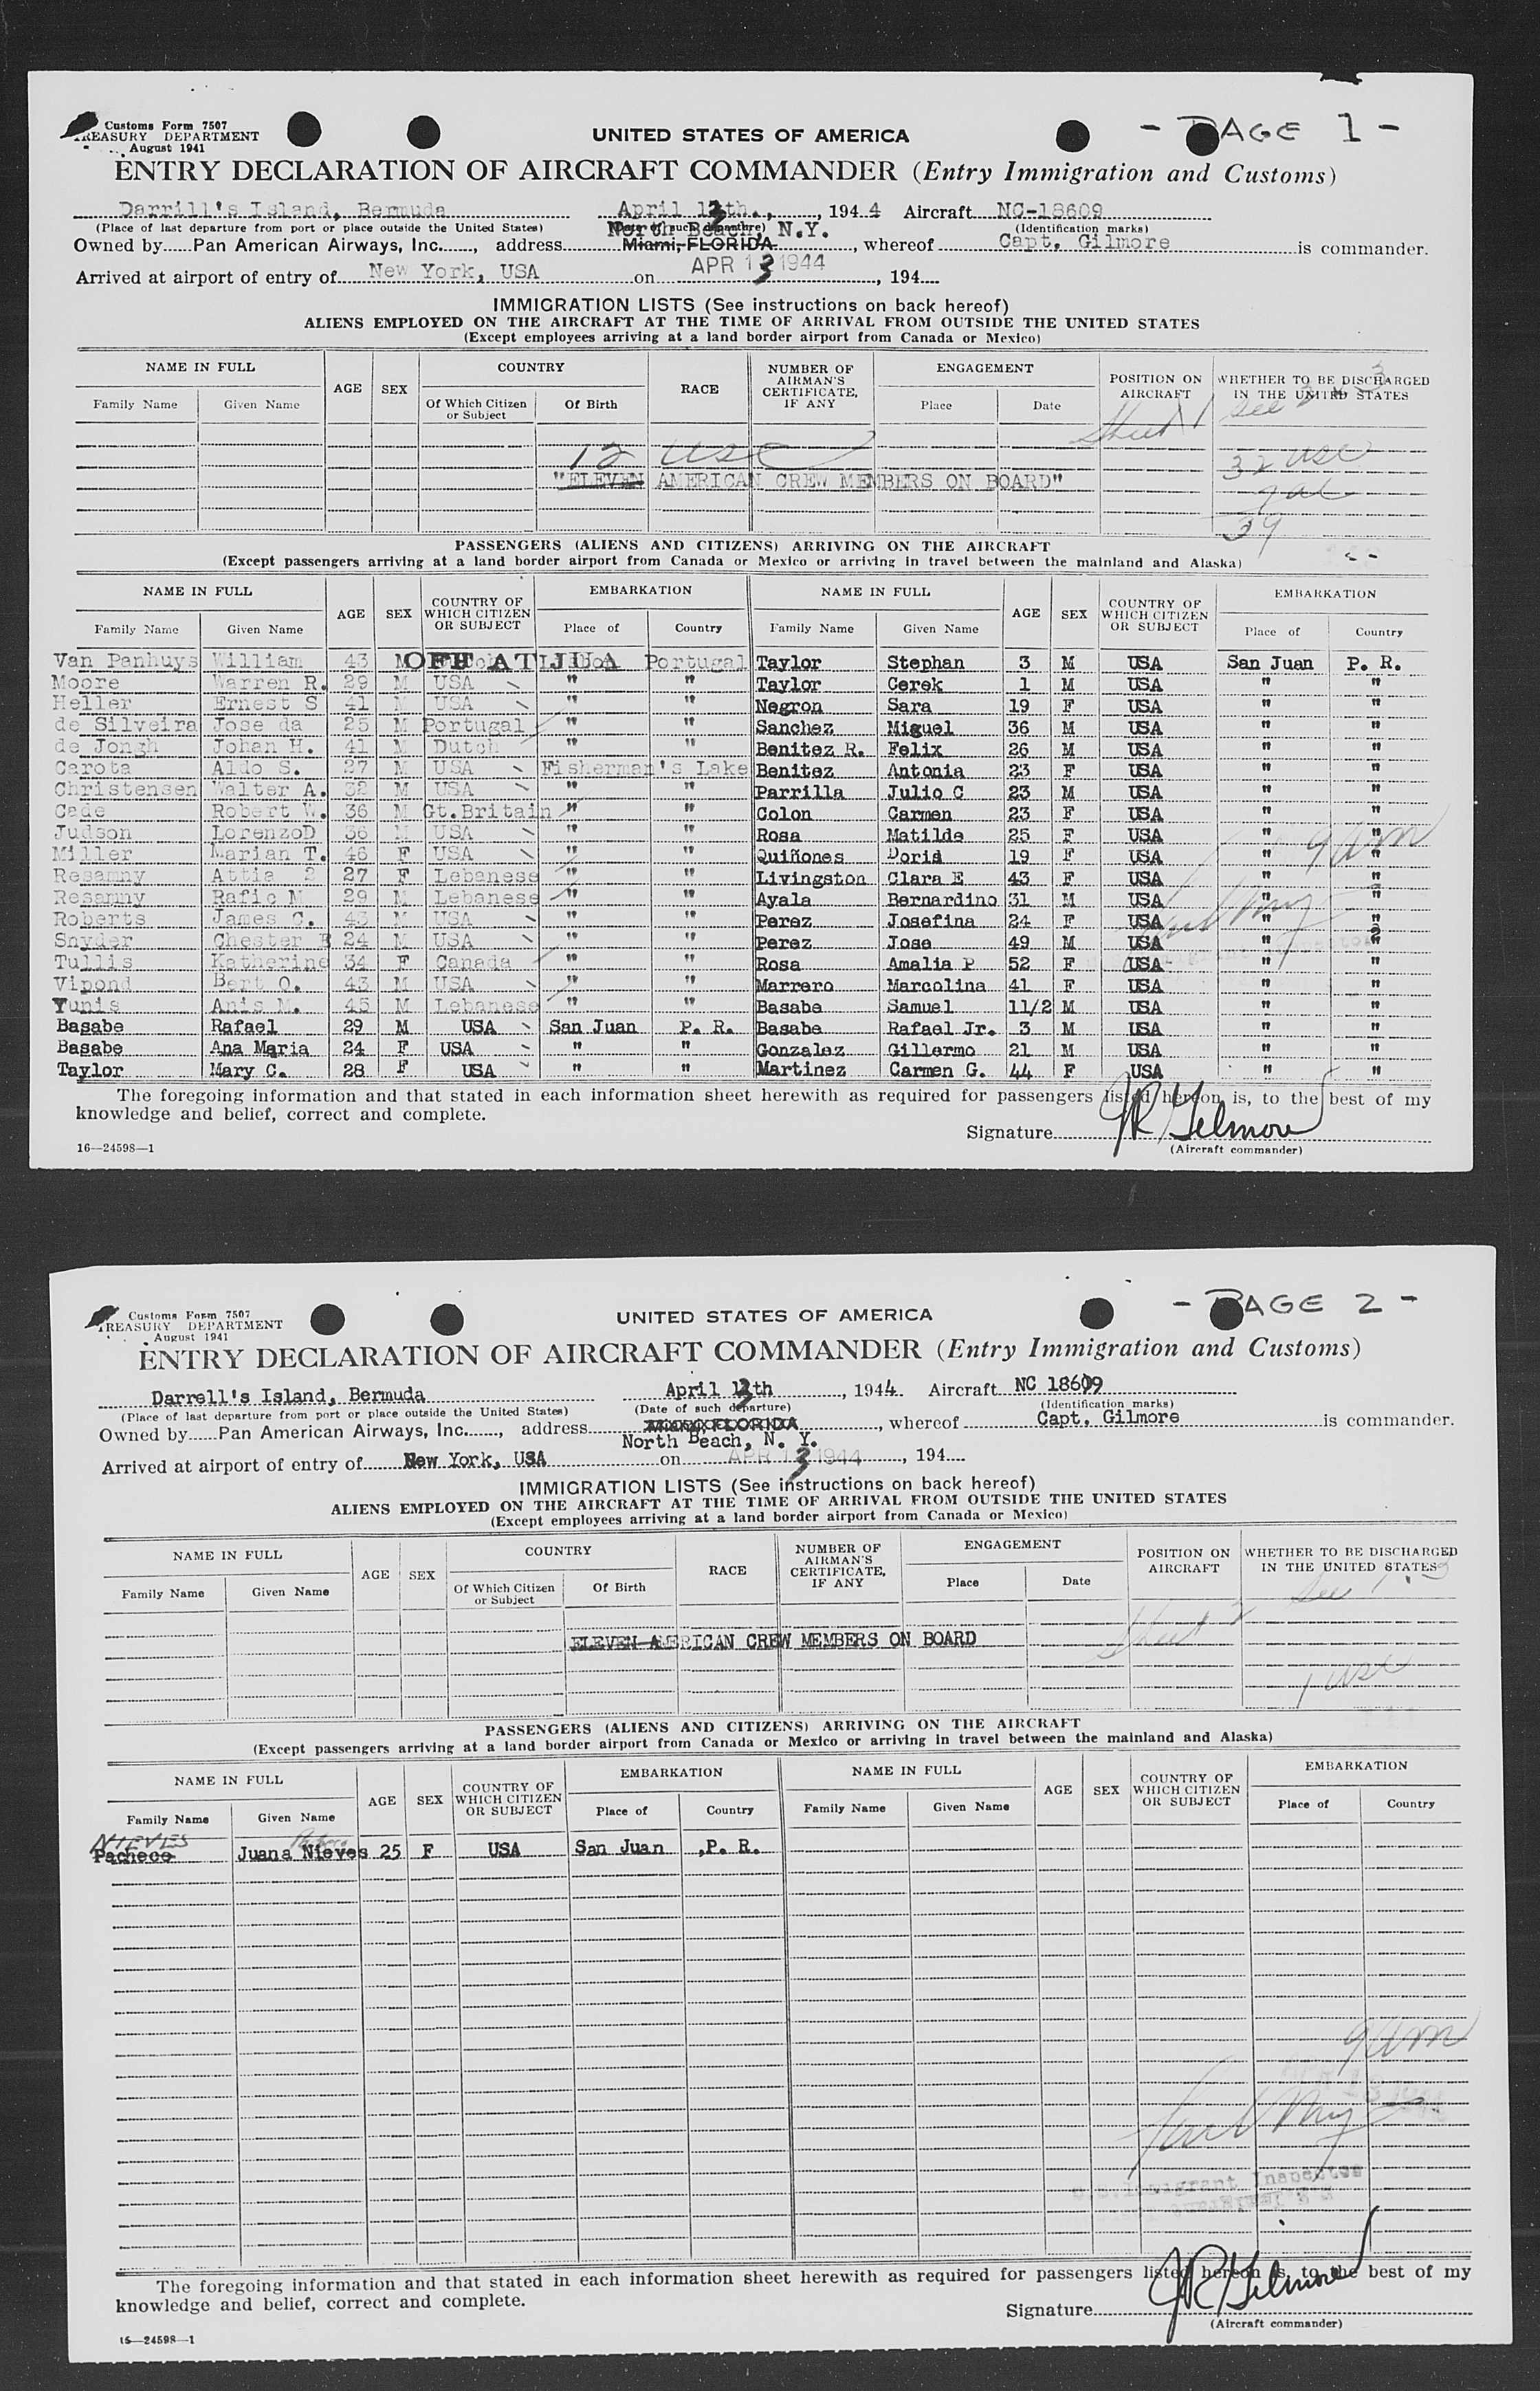 Customs Form 7507
TREASURY DEPARTMENT
August 1941
UNITED STATES OF AMERICA
- PAGE 1 -
ENTRY DECLARATION OF AIRCRAFT COMMANDER (Entry Immigration and Customs)
Darrill's Island, Bermuda April 13th., 1944 Aircraft NC-18609
(Place of last departure from port or place outside the United States) (Date of such departure) (Identification marks)
North Beach, N.Y.
Owned by Pan American Airways, Inc., address Miami, FLORIDA, whereof Capt. Gilmore is commander.
Arrived at airport of entry of New York, USA on APR 13 1944, 194
IMMIGRATION LISTS (See instructions on back hereof)
ALIENS EMPLOYED ON THE AIRCRAFT AT THE TIME OF ARRIVAL FROM OUTSIDE THE UNITED STATES
(Except employees arriving at a land border airport from Canada or Mexico)
NAME IN FULL AGE SEX COUNTRY RACE NUMBER OF AIRMAN'S CERTIFICATE, IF ANY ENGAGEMENT POSITION ON AIRCRAFT WHETHER TO BE DISCHARGED IN THE UNITED STATES
Family Name Given Name Of Which Citizen or Subject Of Birth Place Date
Sheet 1 See 2 x 3
12 USC
32 USC
"ELEVEN AMERICAN CREW MEMBERS ON BOARD"
39
PASSENGERS (ALIENS AND CITIZENS) ARRIVING ON THE AIRCRAFT
(Except passengers arriving at a land border airport from Canada or Mexico or arriving in travel between the mainland and Alaska)
NAME IN FULL AGE SEX COUNTRY OF WHICH CITIZEN OR SUBJECT EMBARKATION NAME IN FULL AGE SEX COUNTRY OF WHICH CITIZEN OR SUBJECT EMBARKATION
Family Name Given Name Place of Country Family Name Given Name Place of Country
Van Panhuys William 43 M Portugal Taylor Stephan 3 M USA San Juan P. R.
Moore Warren R. 29 M USA " " Taylor Cerek 1 M USA " "
Heller Ernest S 41 M USA " " Negron Sara 19 F USA " "
de Silveira Jose da 25 M Portugal " " Sanchez Miguel 36 M USA " "
de Jongh Johan H. 41 M Dutch " " Benitez R. Felix 26 M USA " "
Carota Aldo S. 27 M USA Fisherman's Lake Benitez Antonia 23 F USA " "
Christensen Walter A. 32 M USA " " Parrilla Julio C 23 M USA " "
Cade Robert W. 36 M Gt.Britain " " Colon Carmen 23 F USA " "
Judson LorenzoD 36 M USA " " Rosa Matilde 25 F USA " "
Miller Marian T. 46 F USA " " Quiñones Doris 19 F USA " "
Resamny Attia 27 F Lebanese " " Livingston Clara E 43 F USA " "
Resamny Rafic M 29 M Lebanese " " Ayala Bernardino 31 M USA " "
Roberts James C. 43 M USA " " Perez Josefina 24 F USA " "
Snyder Chester E 24 M USA " " Perez Jose 49 M USA " "
Tullis Katherine 34 F Canada " " Rosa Amalia P 52 F USA " "
Vipond Bert O. 43 M USA " " Marrero Marcolina 41 F USA " "
Yunis Anis M. 45 M Lebanese " " Basabe Samuel 11/2 M USA " "
Basabe Rafael 29 M USA San Juan P. R. Basabe Rafael Jr. 3 M USA " "
Basabe Ana Maria 24 F USA " " Gonzalez Gillermo 21 M USA " "
Taylor Mary C. 28 F USA " " Martinez Carmen G. 44 F USA " "
The foregoing information and that stated in each information sheet herewith as required for passengers listed hereon is, to the best of my
knowledge and belief, correct and complete.
Signature JR Gilmore
(Aircraft commander)
16—24598—1
Customs Form 7507
TREASURY DEPARTMENT
August 1941
UNITED STATES OF AMERICA
- PAGE 2 -
ENTRY DECLARATION OF AIRCRAFT COMMANDER (Entry Immigration and Customs)
Darrell's Island, Bermuda April 13th, 1944 Aircraft NC 18609
(Place of last departure from port or place outside the United States) (Date of such departure) (Identification marks)
Owned by Pan American Airways, Inc., address FLORIDA, whereof Capt. Gilmore is commander.
North Beach, N. Y.
Arrived at airport of entry of New York, USA on APR 13 1944, 194
IMMIGRATION LISTS (See instructions on back hereof)
ALIENS EMPLOYED ON THE AIRCRAFT AT THE TIME OF ARRIVAL FROM OUTSIDE THE UNITED STATES
(Except employees arriving at a land border airport from Canada or Mexico)
NAME IN FULL AGE SEX COUNTRY RACE NUMBER OF AIRMAN'S CERTIFICATE, IF ANY ENGAGEMENT POSITION ON AIRCRAFT WHETHER TO BE DISCHARGED IN THE UNITED STATES
Family Name Given Name Of Which Citizen or Subject Of Birth Place Date
Sheet 2 See 1. 3
ELEVEN AMERICAN CREW MEMBERS ON BOARD
1 USC
PASSENGERS (ALIENS AND CITIZENS) ARRIVING ON THE AIRCRAFT
(Except passengers arriving at a land border airport from Canada or Mexico or arriving in travel between the mainland and Alaska)
NAME IN FULL AGE SEX COUNTRY OF WHICH CITIZEN OR SUBJECT EMBARKATION NAME IN FULL AGE SEX COUNTRY OF WHICH CITIZEN OR SUBJECT EMBARKATION
Family Name Given Name Place of Country Family Name Given Name Place of Country
NIEVES
Pacheco Juana Nieves 25 F USA San Juan ,P. R.
9 am
U.S. Immigrant Inspector
The foregoing information and that stated in each information sheet herewith as required for passengers listed hereon is, to the best of my
knowledge and belief, correct and complete.
Signature JR Gilmore
(Aircraft commander)
16—24598—1